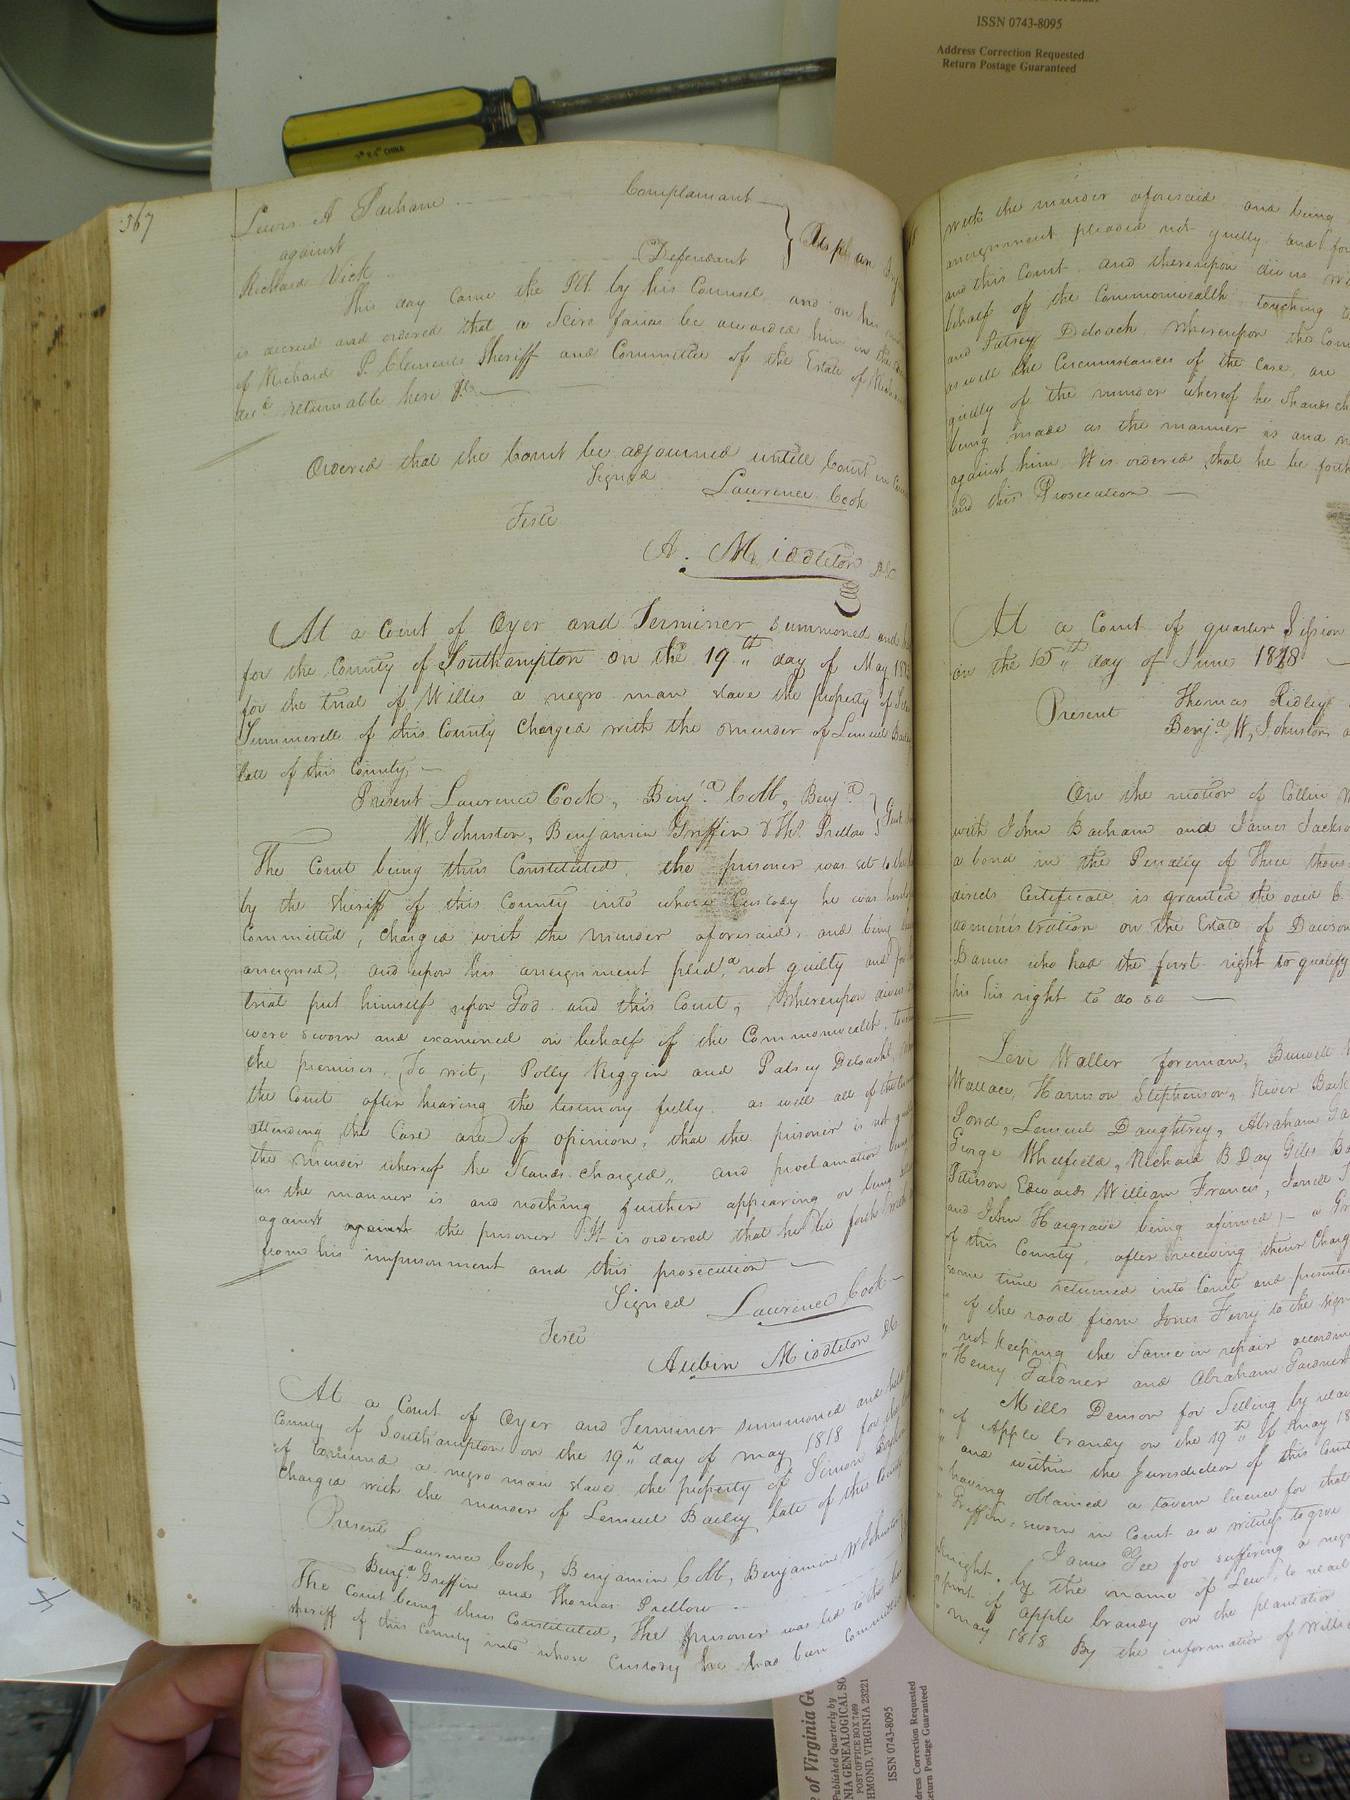 ISSN 0743-8095
Address Correction Requested
Return Postage Guaranteed
CHINA
367
Lewis A Parham Complainant
against
Defendant
Richard Vick
This day came the Plt by his Counsel and on his
is accrued and ordered that a Scire facias be awarded him in the
of Richard P Clements Sheriff and Committee of the Estate of
decd returnable here &c
Ordered that the Court be adjourned untill Court in
Signed
Lawrence Cook
Teste
A. Middleton DC
At a Court of Oyer and Terminer summoned and
for the County of Southampton on the 19th day of May
for the trial of Willis a negro man slave the property of
Summerell of this County Charged with the murder of Lemuel
late of this County
Present Lawrence Cook, Benja Cobb, Benja
W, Johnston, Benjamin Griffin & Ths Pretlow Gent
The Court being thus Constituted, the prisoner was set to the
by the Sheriff of this County into whose Custody he was
Committed, charged with the murder aforesaid, and being
arraigned, and upon his arraignment plead not guilty and for
trial put himself upon God and this Court, Whereupon divers
were sworn and examined on behalf of the Commonwealth,
the premises, (To wit, Polly Riggin and Patsey Deloach)
the Court after hearing the testimony fully as well all of the
attending the Case are of opinion, that the prisoner is not
the murder whereof he Stands charged, and proclamation
as the manner is and nothing further appearing or being
against against the prisoner It is ordered that he be forth with
from his imprisonment and this prosecution
Signed Lawrence Cook
Teste
Aubin Middleton DC
At a Court of Oyer and Terminer summoned and held
County of Southampton on the 19th day of May 1818 for the
of a negro man slave the property of Simon
Charged with the murder of Lemuel Bailey late of this County
Present
Lawrence Cook, Benjamin Cobb, Benjamin W Johnston
Benja Griffin and Thomas Pretlow
The Court being thus Constituted, the prisoner was led to the bar
Sheriff of this County into whose Custody he had been committed
with the murder aforesaid and being
arraignment pleaded not guilty and for
and this Court and thereupon divers
behalf of the Commonwealth touching
and Patsey Deloach Whereupon the Court
as well the Circumstances of the case are
guilty of the murder whereof he Stands
being made as the manner is and
against him It is ordered that he be forth
and this Prosecution
At a Court of quarter Session
on the 15th day of June 1818
Present Thomas Ridley
Benja W, Johnston
On the motion of Collin
with John Barham and James
a bond in the Penalty of Three
directs Certificate is granted the said
administration on the Estate of
Barnes who had the first right to qualify
his his right to do so
Levi Waller foreman,
Wallace, Harrison Stephenson,
Pond, Lemuel Daughtrey, Abraham
George Whitfield, Richard B Day Giles
Peterson Edwards William Francis,
and John Hargrave being afirmed, a
of this County, after receiving their Charge
some time returned into Court and presented
of the road from Jones Ferry to the
not keeping the Same in repair according
Henry Gardner and Abraham Gardner
Mills Denson for Selling by retail
of Apple brandy on the 19th of May
and within the Jurisdiction of this Court
having obtained a tavern licence for that
Griffin, sworn in Court as a witness to give
James Gee for suffering a negro
by the name of Lew, to retail
pint of apple brandy on the plantation
may 1818 By the information of Willis
of Virginia
Published Quarterly by
GENEALOGICAL
POST OFFICE BOX 7469
VIRGINIA 23221
ISSN 0743-8095
Correction Requested
Postage Guaranteed